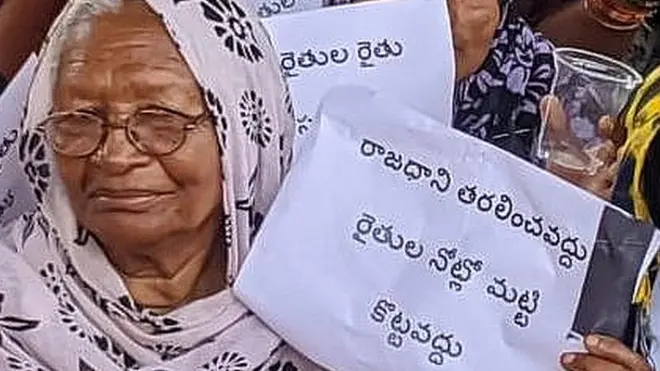 రైతుల రైతు
రాజధాని తరలించవద్దు
రైతుల నోట్లో మట్టి
కొట్టవద్దు